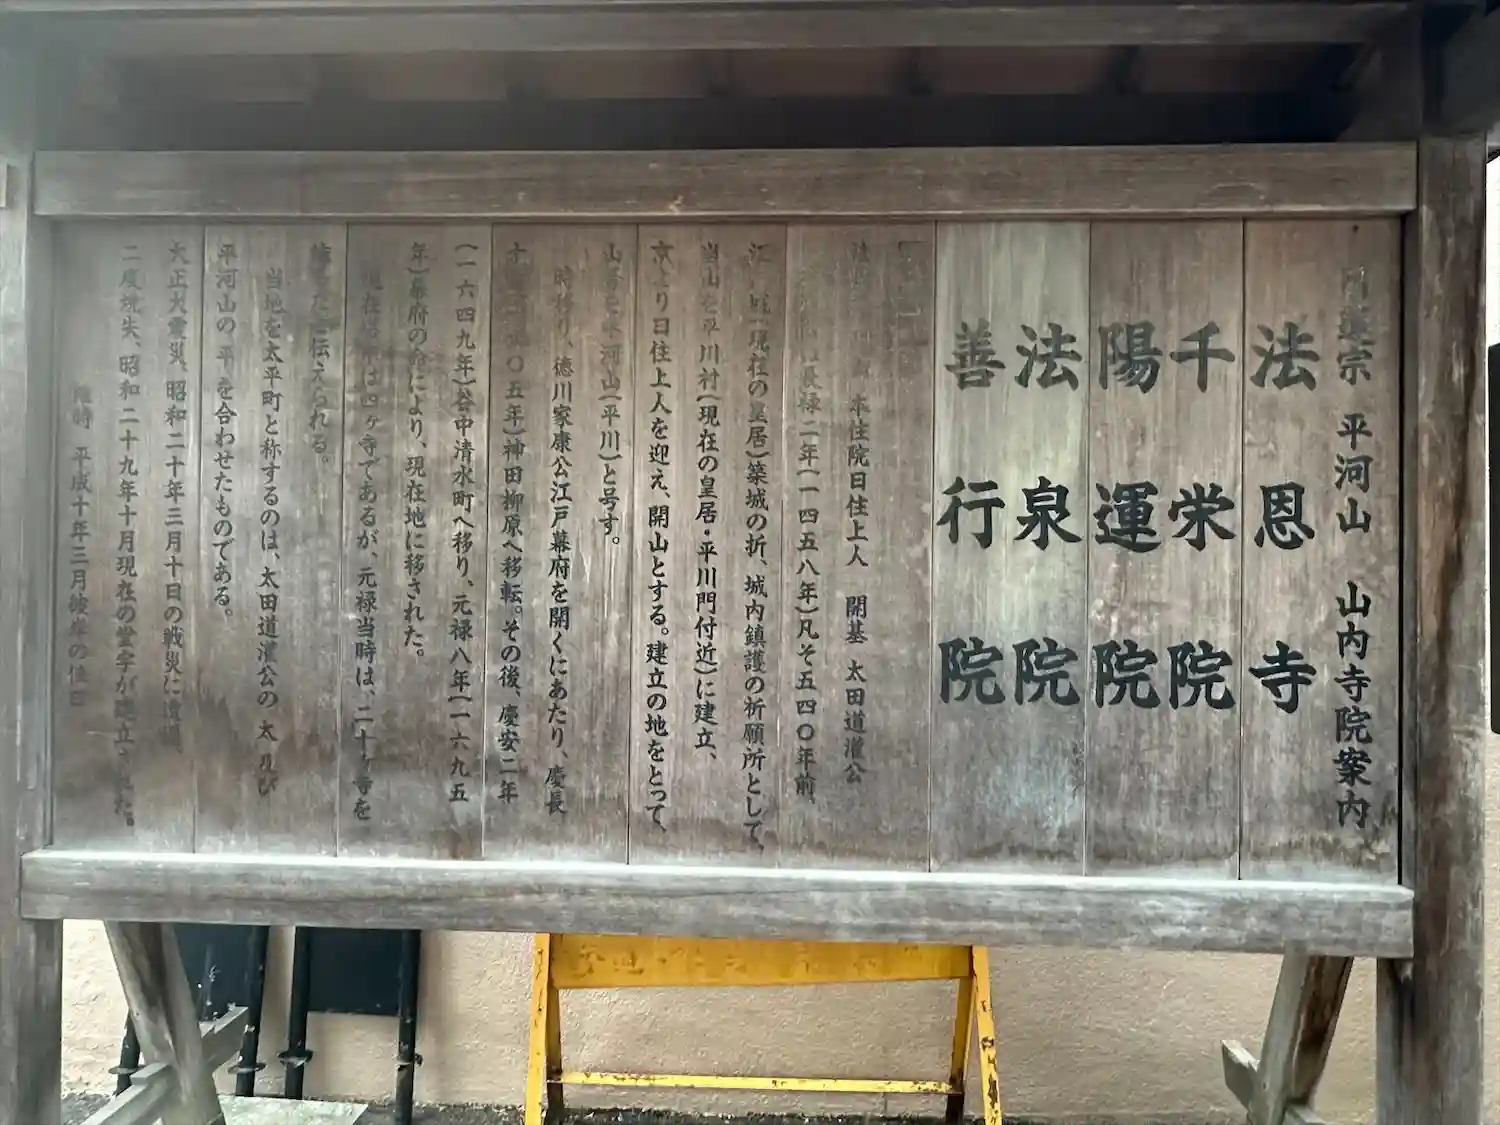 日蓮宗 平河山 山内寺院案内
法恩寺
千栄院
陽運院
法泉院
善行院
本住院日住上人 開基 太田道灌公
長禄二年(一四五八年)凡そ五四〇年前、
江 城(現在の皇居)築城の折、城内鎮護の祈願所として、
当山を平川村(現在の皇居・平川門付近)に建立、
京より日住上人を迎え、開山とする。建立の地をとって、
山号を平河山(平川)と号す。
時移り、徳川家康公江戸幕府を開くにあたり、慶長
十 〇五年)神田柳原へ移転。その後、慶安二年
(一六四九年)谷中清水町へ移り、元禄八年(一六九五
年)幕府の命により、現在地に移された。
現在 は四ヶ寺であるが、元禄当時は、二十ヶ寺を
たと伝えられる。
当地を太平町と称するのは、太田道灌公の 太 及び
平河山の 平 を合わせたものである。
大正大震災、昭和二十年三月十日の戦災に
二度焼失、昭和二十九年十月現在の堂宇が建立された。
維時 平成十年三月彼岸の佳日